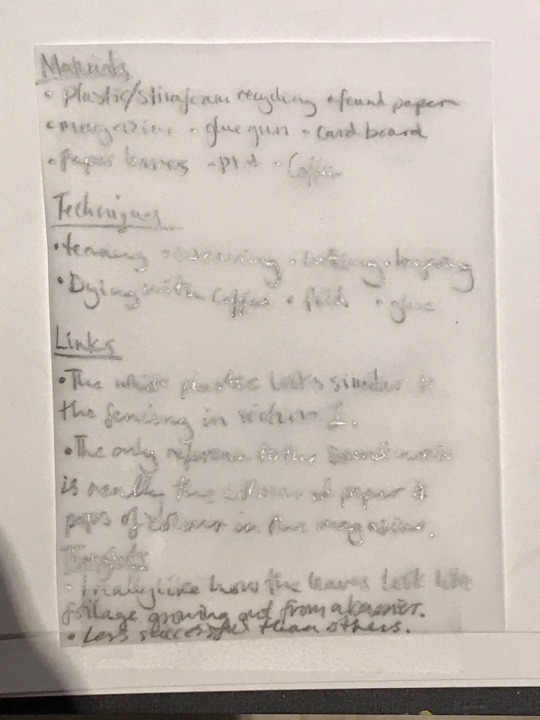 Materials
• plastic/stirafoam recycling • found paper
• magazine • glue gun • card board
• paper leaves • PVA • Coffee
Techniques
• tearing • weaving • cutting • looping
• Dying with Coffee • folds • glue
Links
• The white plastic looks similar to
the fencing in section 1.
• The only reference to the
is really the coloured paper &
pops of colour in the magazine.
Thoughts
• I really like how the leaves look like
foliage growing out from a barrier.
• Less successful than others.